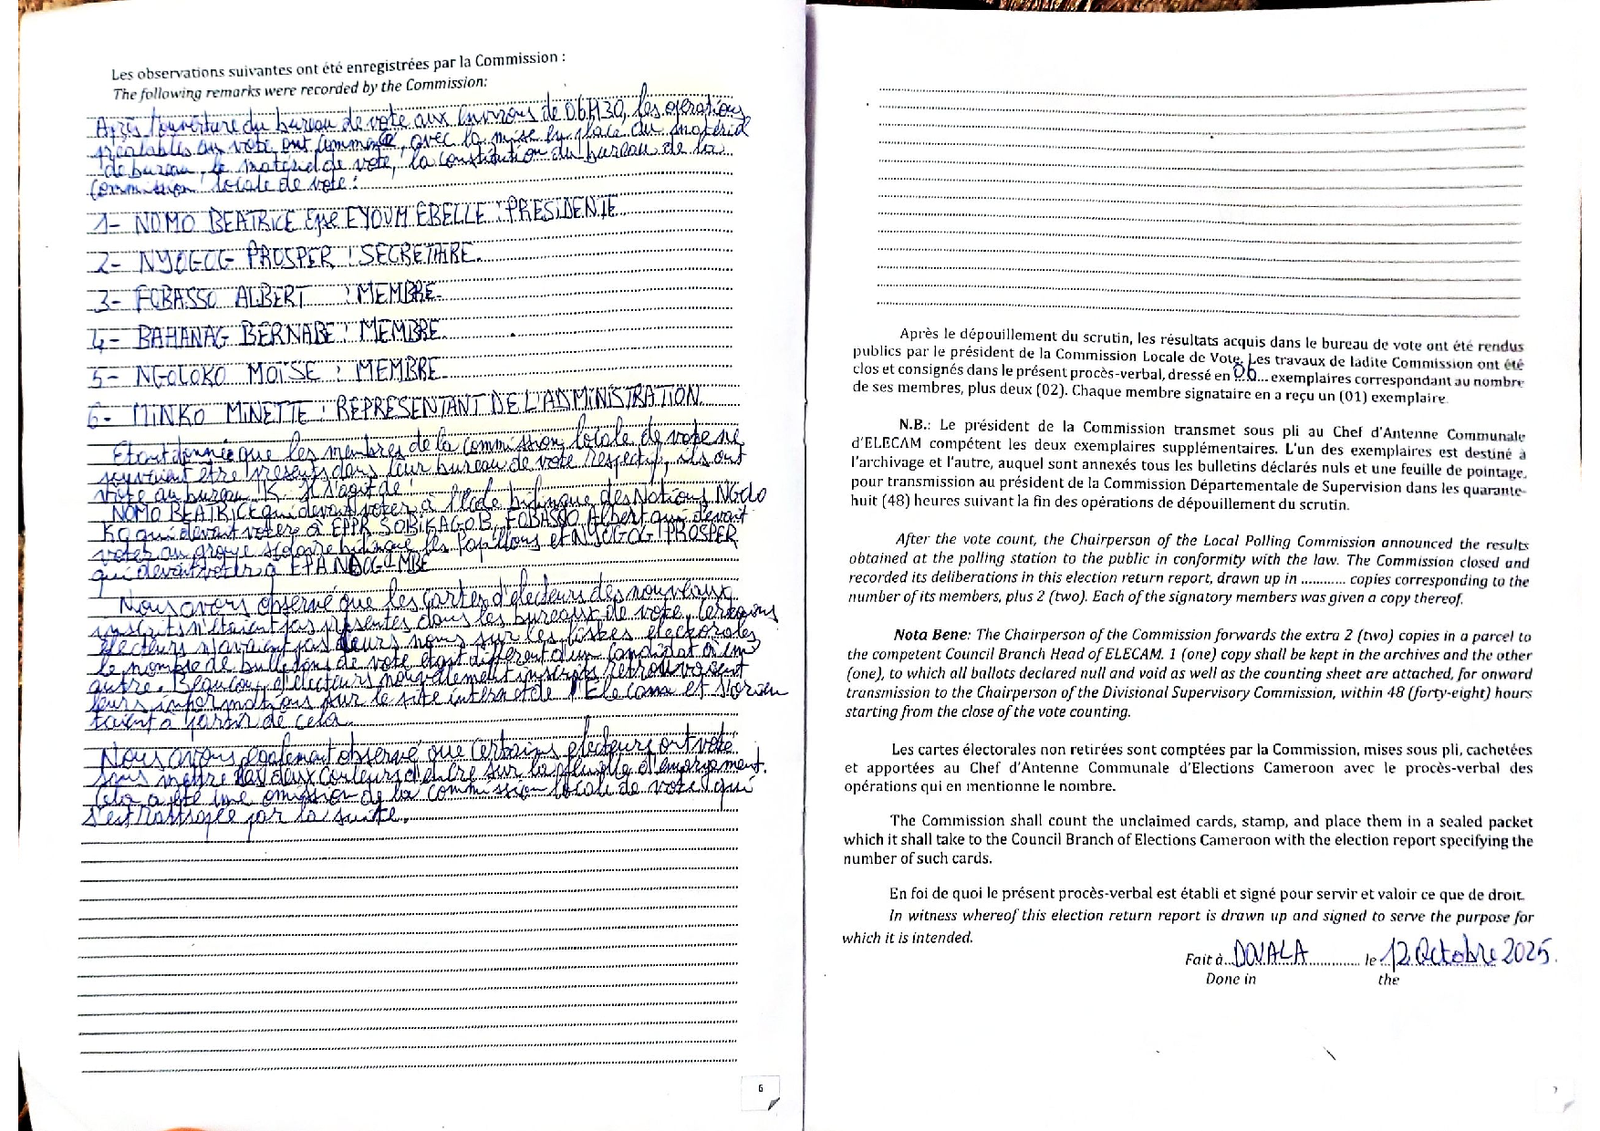 Les observations suivantes ont été enregistrées par la Commission :
The following remarks were recorded by the Commission:
Après l'ouverture du bureau de vote aux environs de 06H30, les opérations
préalables au vote ont commencé avec la mise en place du matériel
de bureau, le matériel de vote, la constitution du bureau de la
Commission locale de vote :
1- NOMO BEATRICE Epse EYOUM EBELLE : PRESIDENTE
2- NYOGOG PROSPER : SECRETAIRE.
3- FOBASSO ALBERT : MEMBRE
4- BAHANAG BERNABE : MEMBRE
5- NGOLOKO MOISE : MEMBRE
6- MINKO MINETTE : REPRESENTANT DE L'ADMINISTRATION
Etant donnée que les membres de la commission locale de vote ne
pouvaient être présents dans leur bureau de vote respectif, ils ont
voté au bureau K. Il s'agit de :
NOMO BEATRICE qui devait voter à l'école bilingue des Nations, NGOLO
KO qui devait voter à EPPR SOBIKAGOB, FOBASSO Albert qui devait
voter au groupe scolaire bilingue les Papillons et NYOGOG PROSPER
qui devait voter à EPA
Nous avons observé que les cartes d'électeurs des nouveaux
inscrits n'étaient pas présentes dans les bureaux de vote, Certains
électeurs n'avaient pas leurs noms sur les listes électorales
le nombre de bulletins de vote étant différent d'un candidat à un
autre. Beaucoup d'électeurs nouvellement inscrits retrouvaient
leurs informations sur le site internet de Elecam et s'orien
taient à partir de cela.
Nous avons également observé que certains électeurs ont voté
sans mettre les deux couleurs d'encre sur la feuille d'émargement.
Cela a été une omission de la commission locale de vote qui
s'est rattrapée par la suite.
6
Après le dépouillement du scrutin, les résultats acquis dans le bureau de vote ont été rendus
publics par le président de la Commission Locale de Vote. Les travaux de ladite Commission ont été
clos et consignés dans le présent procès-verbal, dressé en 06... exemplaires correspondant au nombre
de ses membres, plus deux (02). Chaque membre signataire en a reçu un (01) exemplaire.
N.B.: Le président de la Commission transmet sous pli au Chef d'Antenne Communale
d'ELECAM compétent les deux exemplaires supplémentaires. L'un des exemplaires est destiné à
l'archivage et l'autre, auquel sont annexés tous les bulletins déclarés nuls et une feuille de pointage,
pour transmission au président de la Commission Départementale de Supervision dans les quarante-
huit (48) heures suivant la fin des opérations de dépouillement du scrutin.
After the vote count, the Chairperson of the Local Polling Commission announced the results
obtained at the polling station to the public in conformity with the law. The Commission closed and
recorded its deliberations in this election return report, drawn up in ........... copies corresponding to the
number of its members, plus 2 (two). Each of the signatory members was given a copy thereof.
Nota Bene: The Chairperson of the Commission forwards the extra 2 (two) copies in a parcel to
the competent Council Branch Head of ELECAM. 1 (one) copy shall be kept in the archives and the other
(one), to which all ballots declared null and void as well as the counting sheet are attached, for onward
transmission to the Chairperson of the Divisional Supervisory Commission, within 48 (forty-eight) hours
starting from the close of the vote counting.
Les cartes électorales non retirées sont comptées par la Commission, mises sous pli, cachetées
et apportées au Chef d'Antenne Communale d'Elections Cameroon avec le procès-verbal des
opérations qui en mentionne le nombre.
The Commission shall count the unclaimed cards, stamp, and place them in a sealed packet
which it shall take to the Council Branch of Elections Cameroon with the election report specifying the
number of such cards.
En foi de quoi le présent procès-verbal est établi et signé pour servir et valoir ce que de droit.
In witness whereof this election return report is drawn up and signed to serve the purpose for
which it is intended.
Fait à DOUALA ............ le 12 Octobre 2025.
Done in the